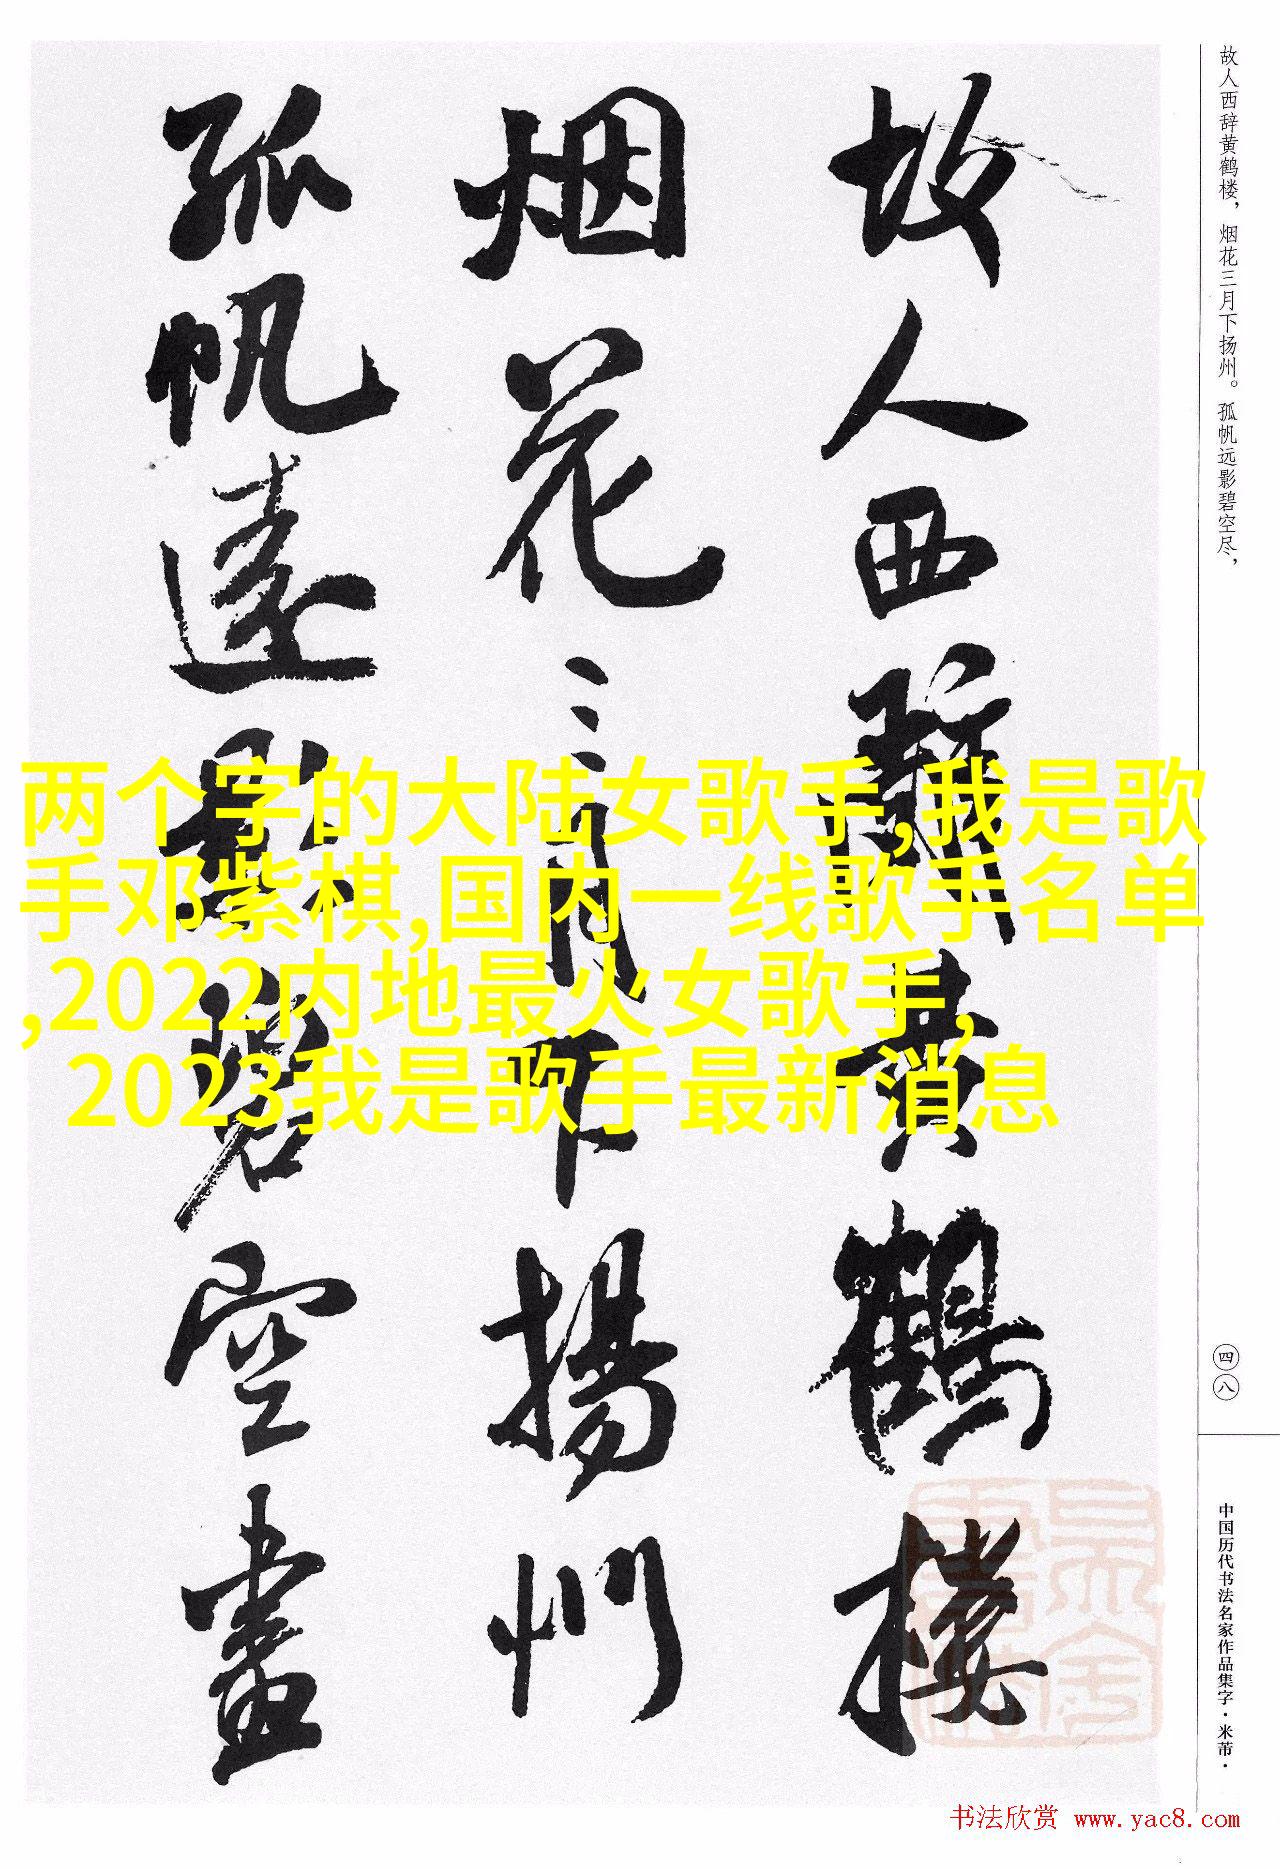 故人西辞黄鹤楼，烟花三月下扬州。孤帆远影碧空尽，
故人西辭黄鶴樓
烟花三月下揚州
孤帆遠影碧空盡
两个字的大陆女歌手,我是歌
手邓紫棋,国内一线歌手名单
,2022内地最火女歌手,
2023我是歌手最新消息
四八
中国历代书法名家作品集字·米芾·
书法欣赏 www.yac8.com